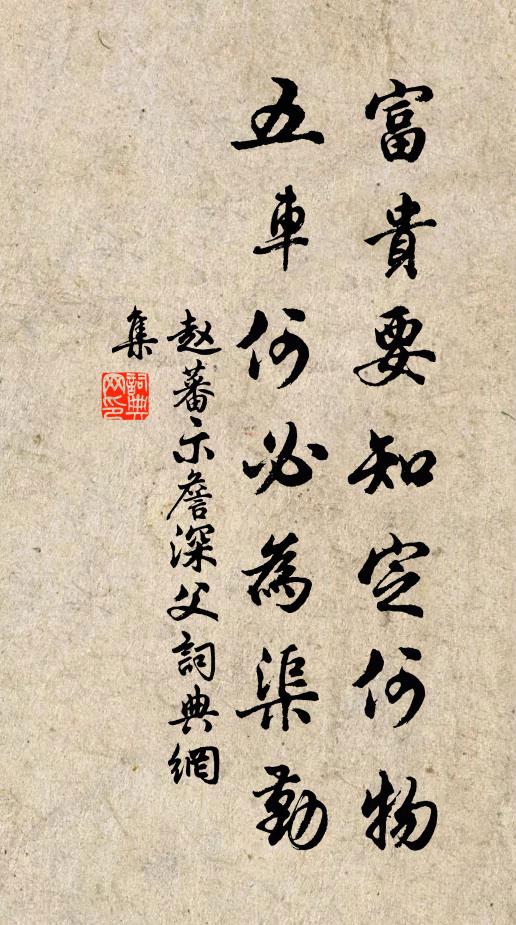 富貴要知定何物
五車何必為渠勤
赵蕃示詹深父詞典網
集
詞典網印